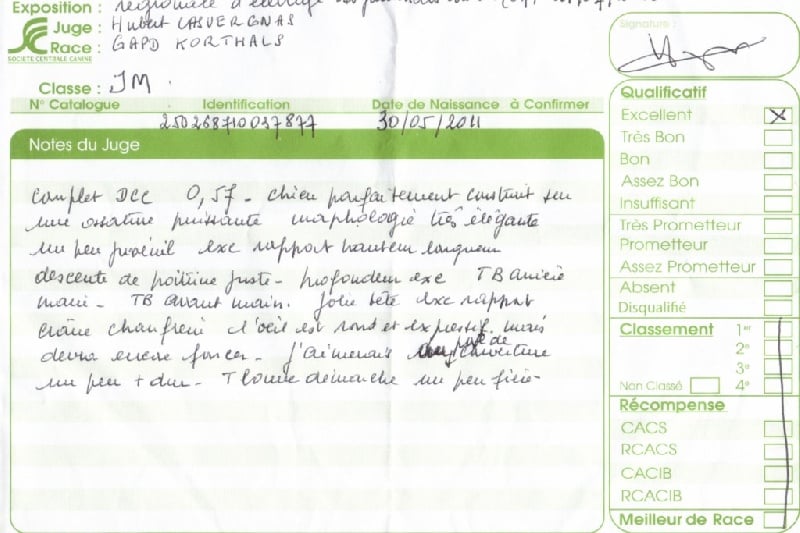 Exposition : Régionale d'élevage
Juge : Hubert CASVERGNAS
Race : GAPD KORTHALS
SOCIÉTÉ CENTRALE CANINE
Classe : JM
N° Catalogue Identification Date de Naissance à Confirmer
250268710037877 30/05/2011
Notes du Juge
Complet DCC 0,57 - chien parfaitement construit sur
une ossature puissante morphologie très élégante
un peu juvénil exc rapport hauteur longueur
descente de poitrine juste - profondeur exc TB arrière
main - TB avant main. Jolie tête exc rapport
crâne chanfrein l'oeil est rond et expressif mais
devra encore foncer - J'aimerais poil de couverture
un peu + dur - T Bonne démarche un peu fière
Signature :
Qualificatif
Excellent X
Très Bon
Bon
Assez Bon
Insuffisant
Très Prometteur
Prometteur
Assez Prometteur
Absent
Disqualifié
Classement 1er
2e
3e
Non Classé 4e
Récompense
CACS
RCACS
CACIB
RCACIB
Meilleur de Race